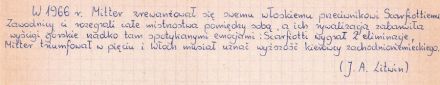 W 1966 r. Mitter zrewanżował się swemu włoskiemu przeciwnikowi Scarfiottiemu.
Zawodnicy ci rozegrali całe mistrzostwa pomiędzy sobą, a ich rywalizacja
wyścigi górskie rzadko tam spotykanymi emocjami: Scarfiotti wygrał 2 eliminacje,
Mitter triumfował w pięciu i Włoch musiał uznać wyższość kierowcy zachodnioniemieckiego.
(J. A. Litwin)